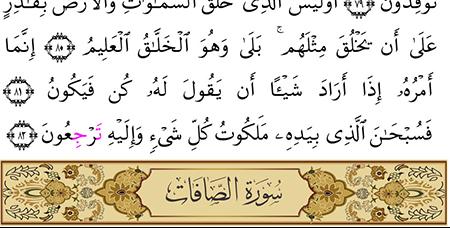 تُوقِدُونَ ﴿٧٩﴾ أَوَلَيْسَ ٱلَّذِى خَلَقَ ٱلسَّمَٰوَٰتِ وَٱلْأَرْضَ بِقَٰدِرٍ
عَلَىٰٓ أَن يَخْلُقَ مِثْلَهُم ۚ بَلَىٰ وَهُوَ ٱلْخَلَّٰقُ ٱلْعَلِيمُ ﴿٨٠﴾ إِنَّمَا
أَمْرُهُۥ إِذَا أَرَادَ شَيْـًٔا أَن يَقُولَ لَهُۥ كُن فَيَكُونُ ﴿٨١﴾
فَسُبْحَٰنَ ٱلَّذِى بِيَدِهِۦ مَلَكُوتُ كُلِّ شَىْءٍ وَإِلَيْهِ تَرْجِعُونَ ﴿٨٢﴾
سُورَةُ الصَّافَات